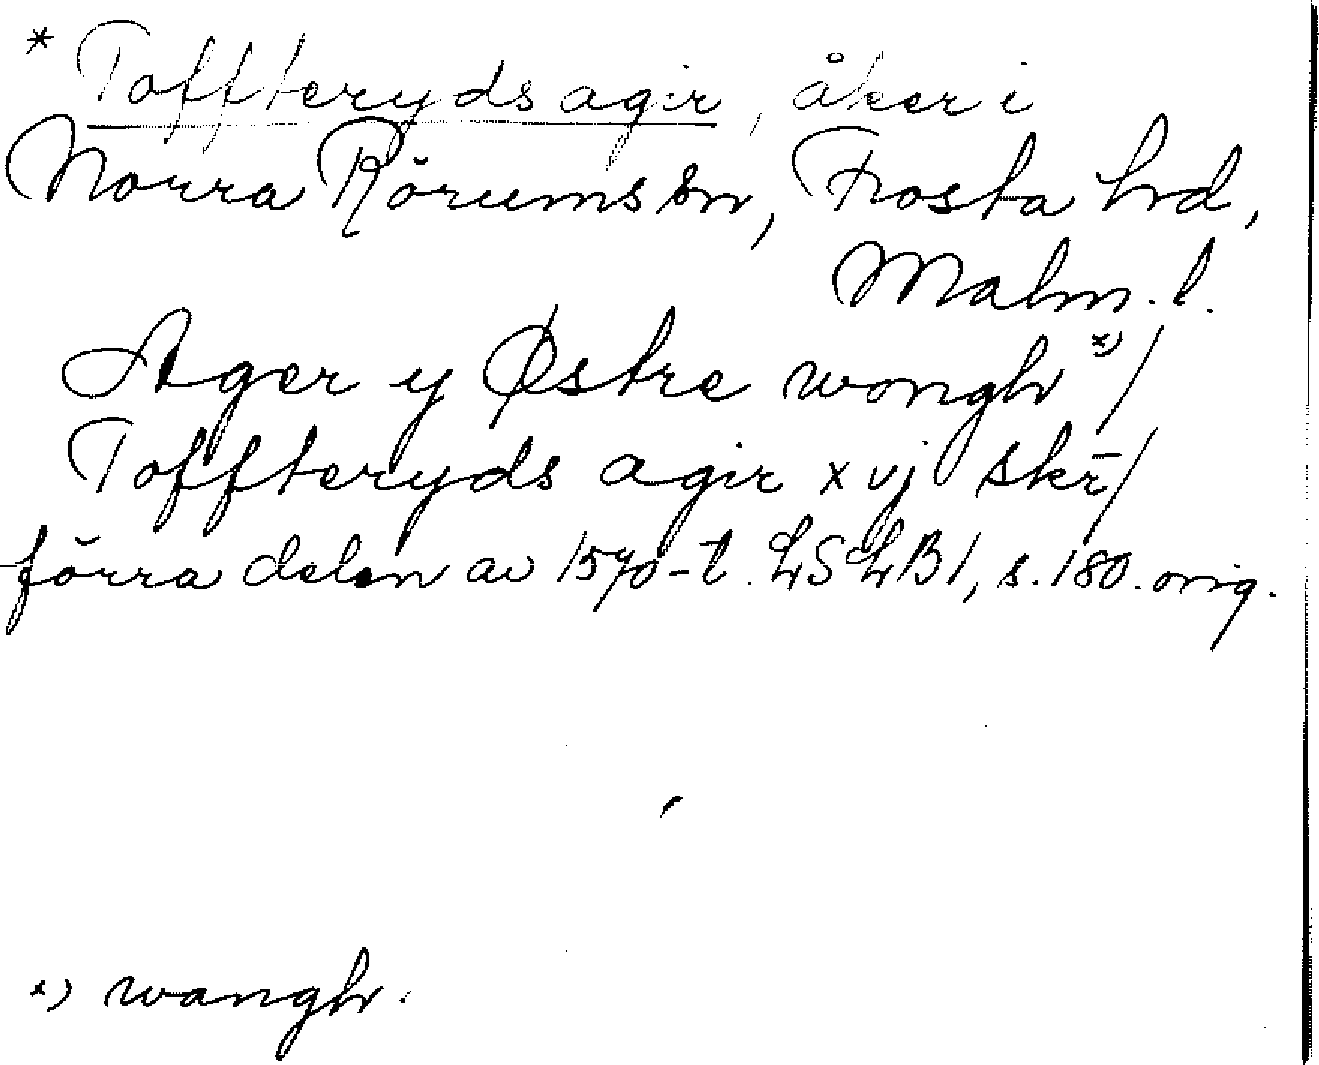 * Toffteryds agir, åker i
Norra Rörums sn, Frosta hd,
Malm. l.
Ager y Østre wongh x)/
Toffteryds agir xvj skr̄/
förra delen av 1570-t. LSLB1, s. 180. orig.
x) wangh.